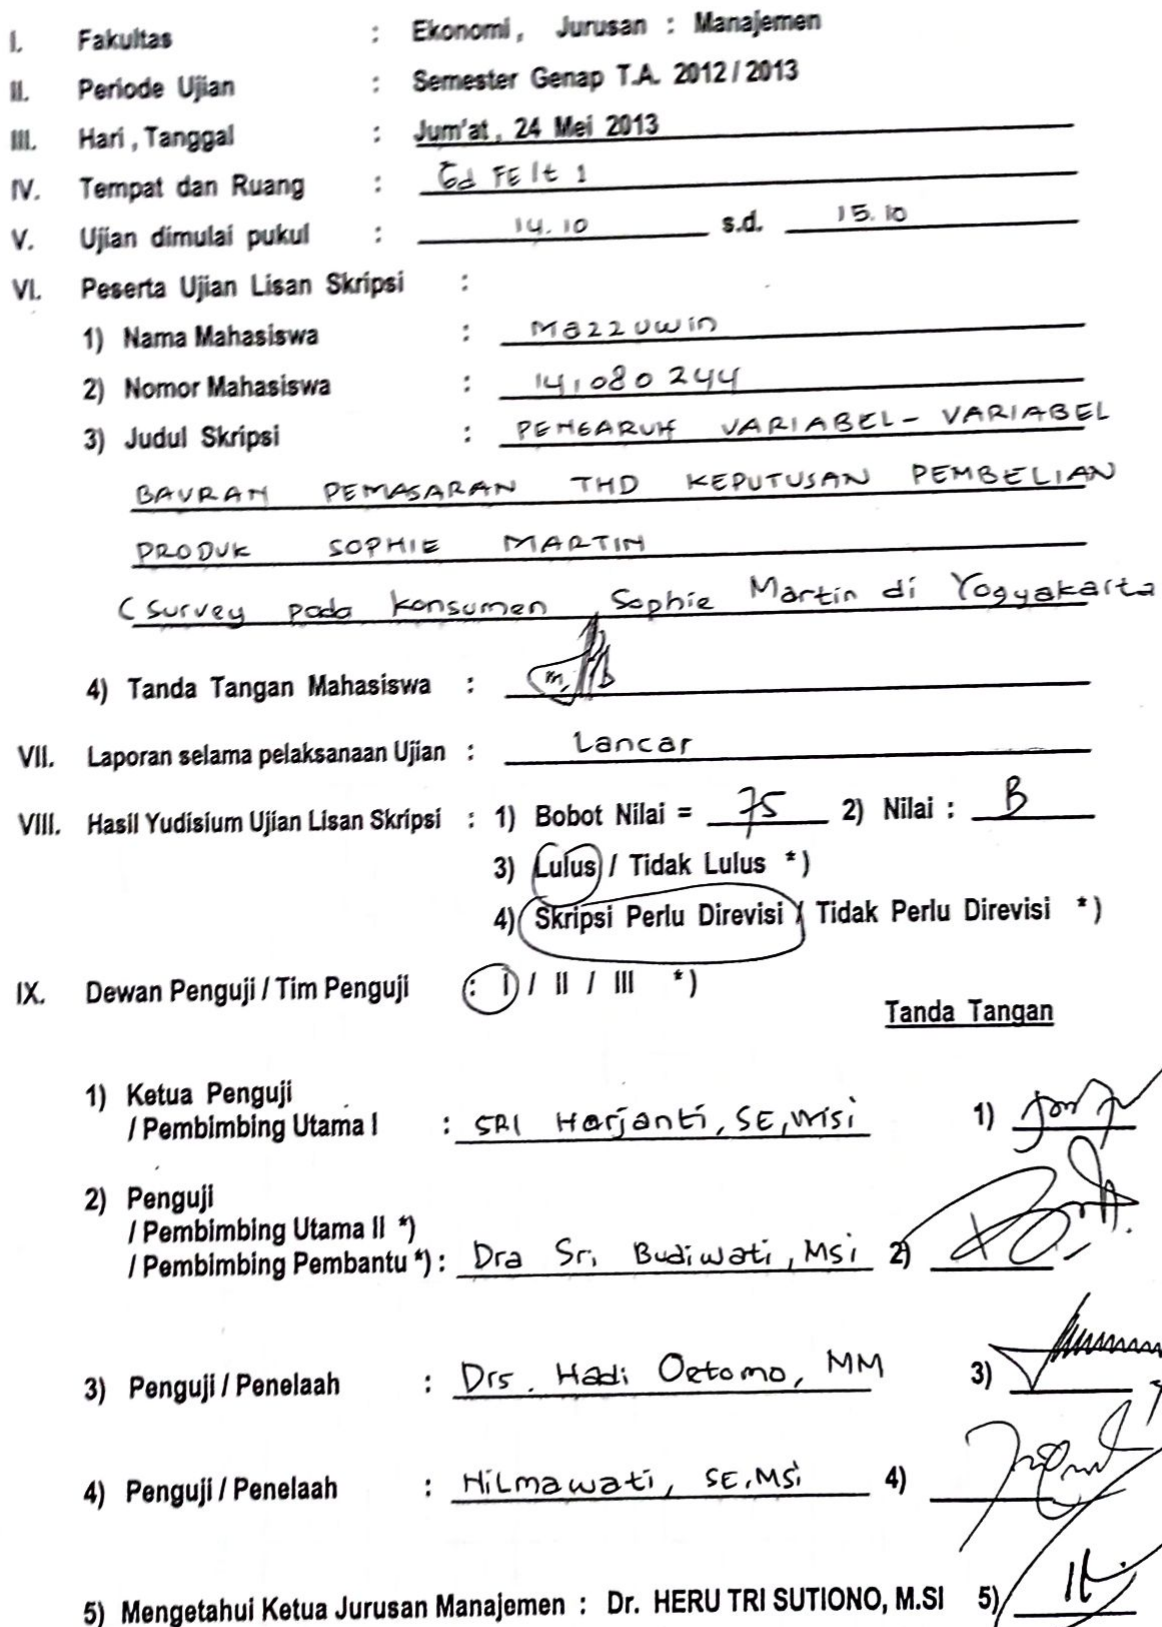 I. Fakultas : Ekonomi, Jurusan : Manajemen
II. Periode Ujian : Semester Genap T.A. 2012/2013
III. Hari, Tanggal : Jum'at, 24 Mei 2013
IV. Tempat dan Ruang : Gd FE lt 1
V. Ujian dimulai pukul : 14.10 s.d. 15.10
VI. Peserta Ujian Lisan Skripsi :
1) Nama Mahasiswa : Mazzuwin
2) Nomor Mahasiswa : 141080244
3) Judul Skripsi : PENGARUH VARIABEL-VARIABEL
BAURAN PEMASARAN THD KEPUTUSAN PEMBELIAN
PRODUK SOPHIE MARTIN
(Survey pada konsumen Sophie Martin di Yogyakarta
4) Tanda Tangan Mahasiswa :
VII. Laporan selama pelaksanaan Ujian : Lancar
VIII. Hasil Yudisium Ujian Lisan Skripsi : 1) Bobot Nilai = 75 2) Nilai : B
3) Lulus / Tidak Lulus *)
4) Skripsi Perlu Direvisi / Tidak Perlu Direvisi *)
IX. Dewan Penguji / Tim Penguji : I / II / III *)
Tanda Tangan
1) Ketua Penguji
/ Pembimbing Utama I : SRI Harjanti, SE, Msi 1)
2) Penguji
/ Pembimbing Utama II *)
/ Pembimbing Pembantu *) : Dra Sri Budiwati, Msi 2)
3) Penguji / Penelaah : Drs. Hadi Oetomo, MM 3)
4) Penguji / Penelaah : Hilmawati, SE.Msi 4)
5) Mengetahui Ketua Jurusan Manajemen : Dr. HERU TRI SUTIONO, M.SI 5)